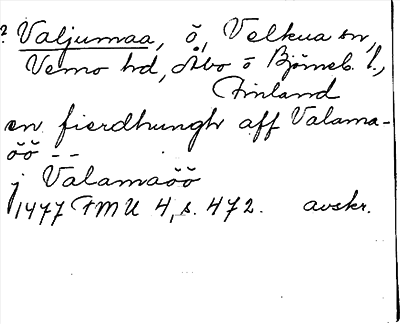 ? Valjumaa, ö, Velkua sn,
Vemo hd, Åbo o Björneb. l.,
Finland
en fierdhungh aff Valama-
öö --
j Valamaöö
1477 FMU 4, s. 472. avskr.